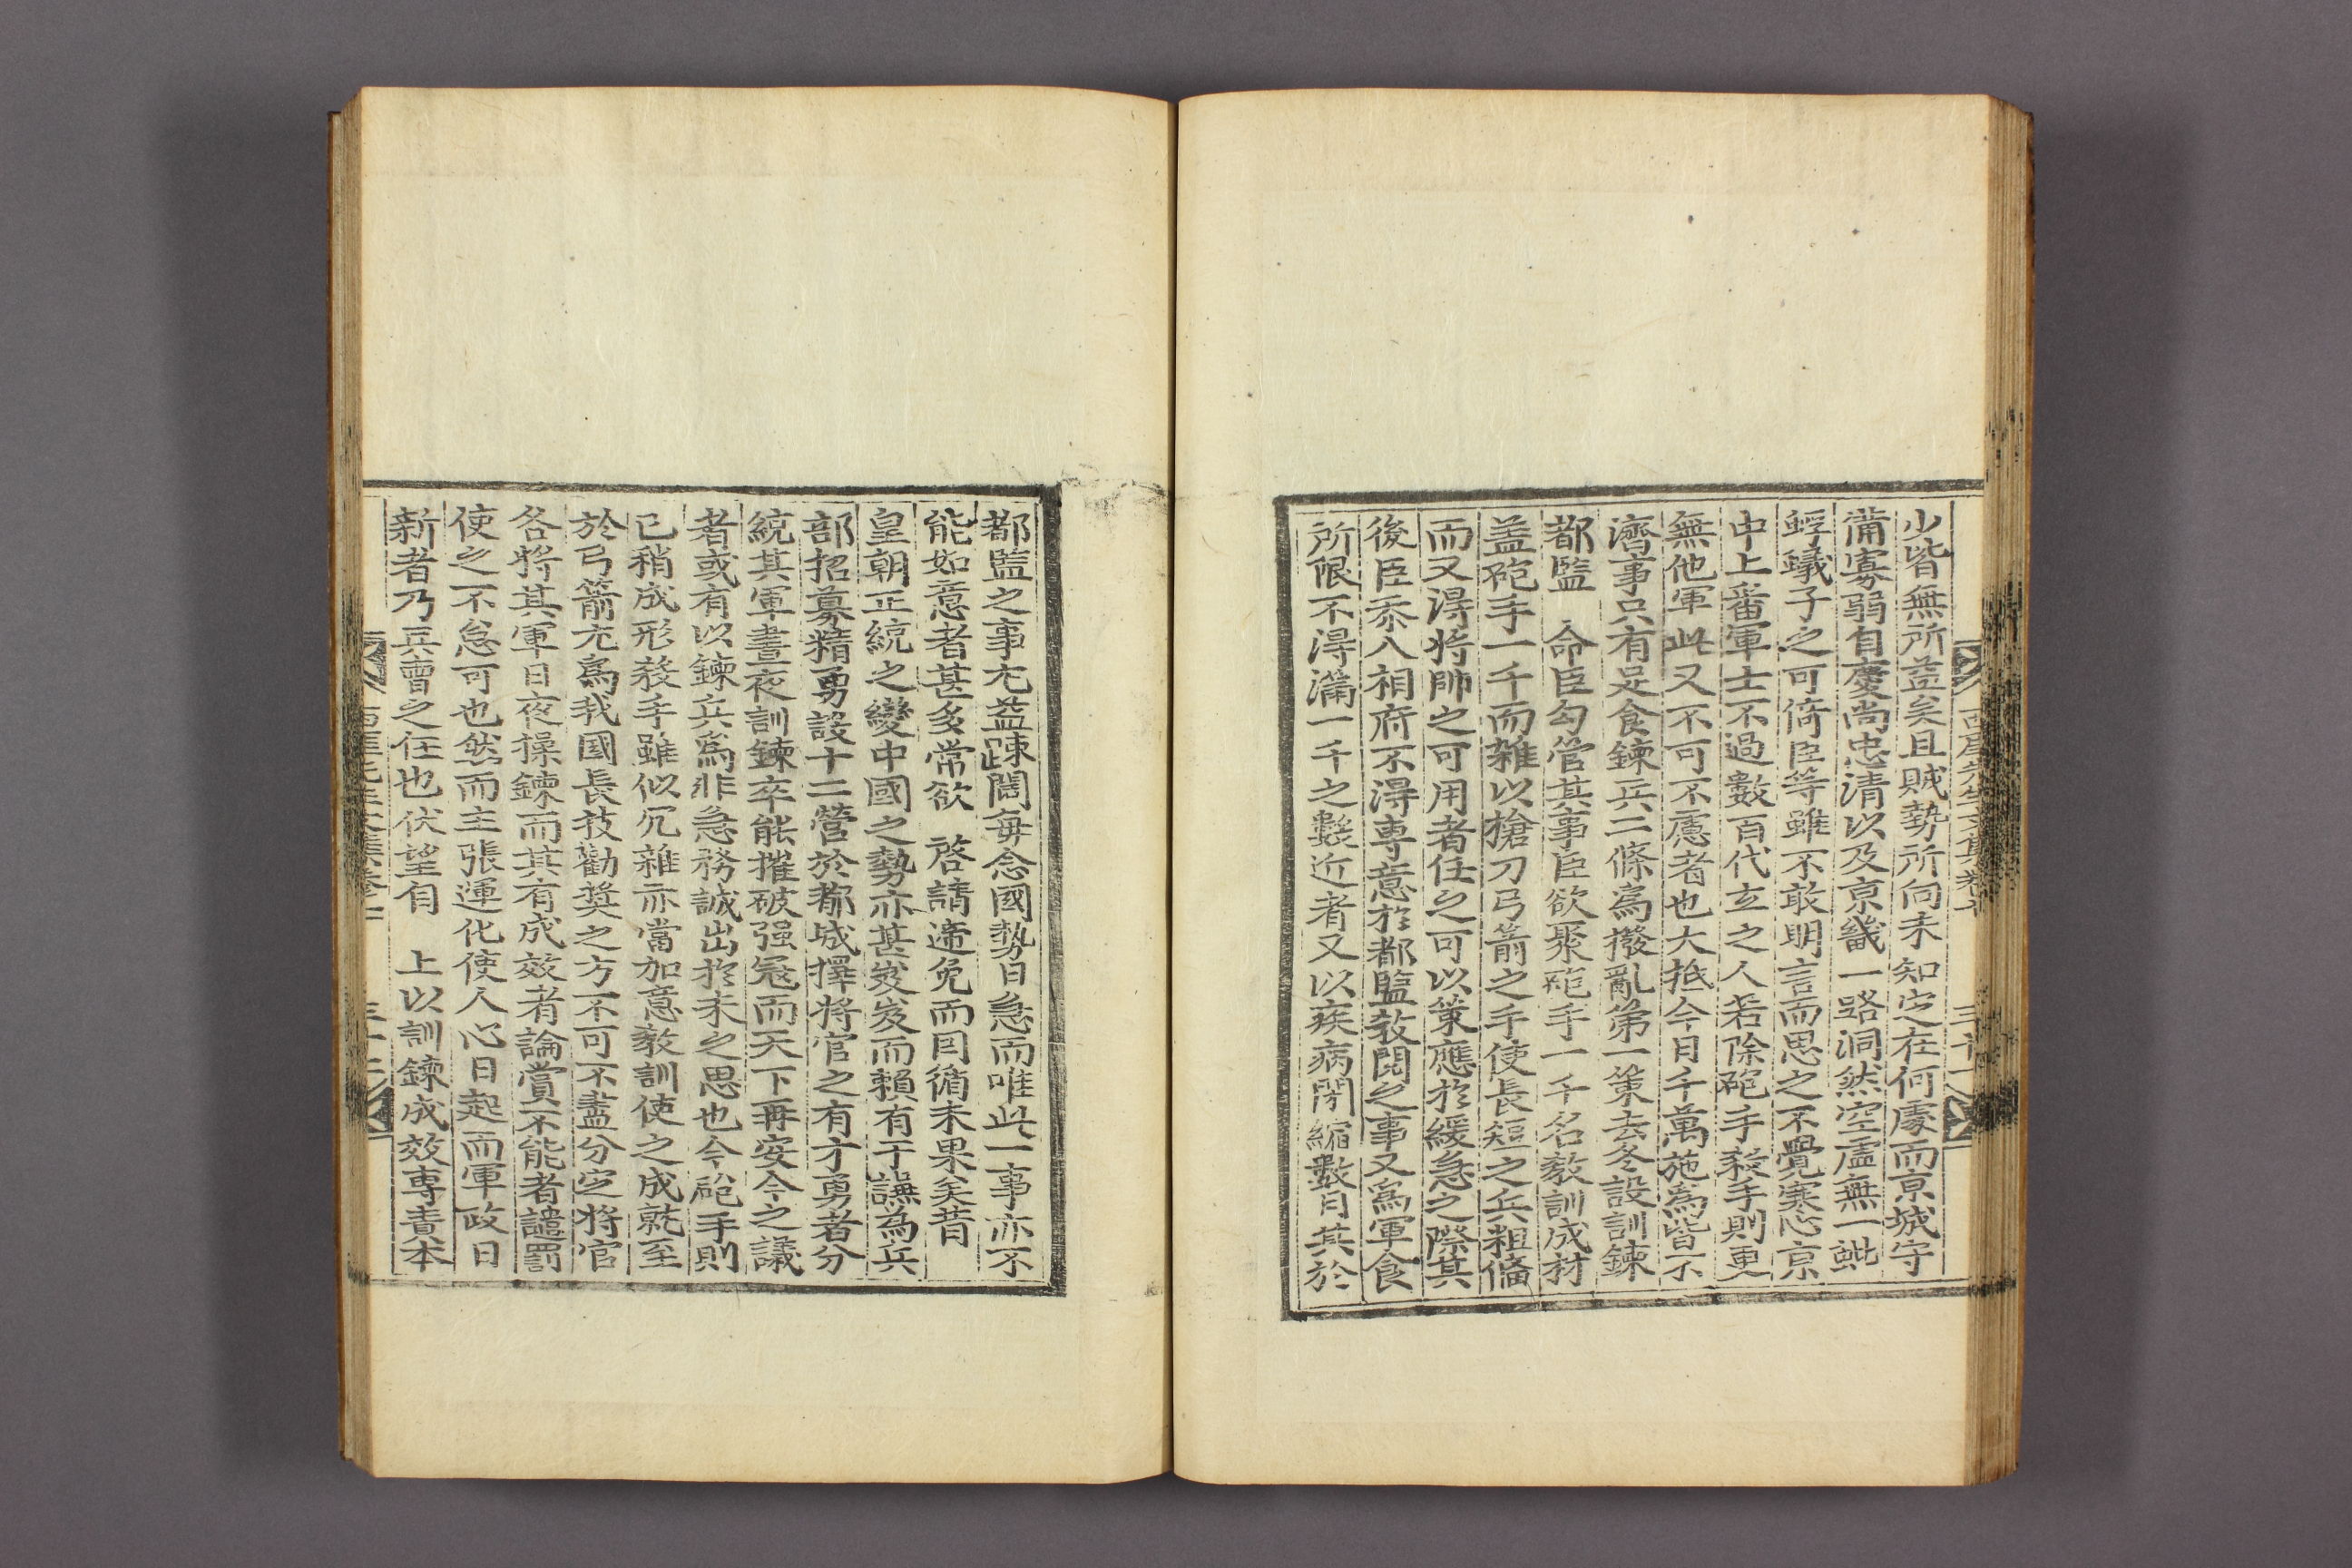 少皆無所益矣且賊勢所向未知定在何處而京城守
備寡弱自慶尚忠清以及京畿一路洞然空虛無一蚍
蜉蟻子之可倚臣等雖不敢明言而思之不覺寒心京
中上番軍士不過數百代立之人若除砲手殺手則更
無他軍此又不可不慮者也大抵今日千萬施爲皆不
濟事只有足食鍊兵二條爲撥亂第一策去冬設訓鍊
都監 命臣勾管其事臣欲聚砲手一千名教訓成材
盖砲手一千而雜以槍刀弓箭之手使長短之兵粗備
而又得將帥之可用者任之可以策應於緩急之際其
後臣忝入相府不得專意於都監教閱之事又爲軍食
所限不得滿一千之數近者又以疾病閉縮數月其於
都監之事尤益踈闊每念國勢日急而唯此一事亦不
能如意者甚多常欲 啓請遞免而因循未果矣昔
皇朝正統之變中國之勢亦甚岌岌而賴有于謙為兵
部招募精勇設十二營於都城擇將官之有才勇者分
統其軍晝夜訓鍊卒能摧破强冦而天下再安今之議
者或有以鍊兵爲非急務誠出於未之思也今砲手則
已稍成形殺手雖似冗雜亦當加意教訓使之成就至
於弓箭尤爲我國長技勸奬之方不可不盡分定將官
各將其軍日夜操鍊而其有成效者論賞不能者譴罰
使之不怠可也然而主張運化使人心日起而軍政日
新者乃兵曹之任也伏望自 上以訓鍊成效專責本